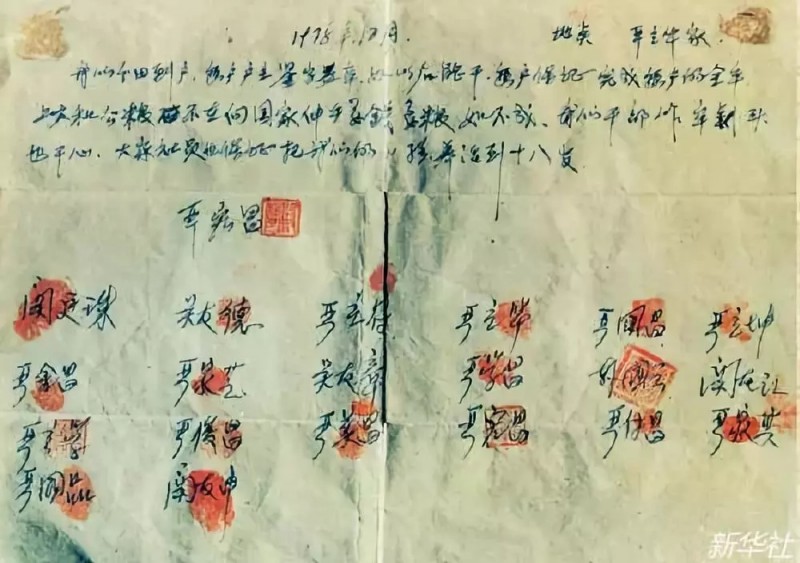 1978年12月. 地点 严立华家.
我们分田到户，每户户主签字盖章，如以后能干，每户保证完成每户的全年
上交和公粮 不在向国家伸手要钱要粮 如不成、我们干部作牢刹头
也干心、大家社员也保证把我们的小孩养活到十八岁
严宏昌
关廷珠 关友德 严立符 严立华 严国昌 严立坤
严金昌 严家芝 关友章 严学昌 韩国云 关友江
严立学 严俊昌 严美昌 严宏昌 严付昌 严家其
严国品 关友申
新华社